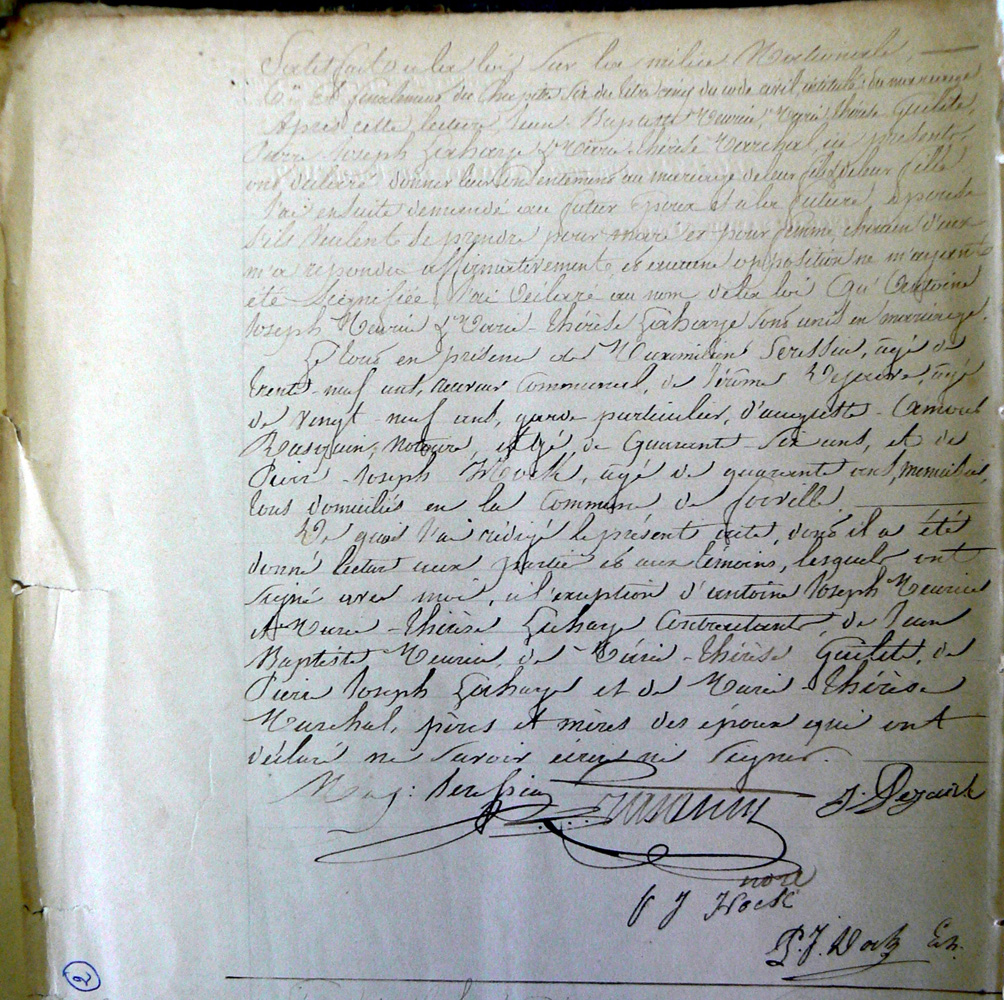 Satisfait à la loi sur la milice Nationale.
du Chapitre six du titre cinq du code civil intitulé du mariage
Après cette lecture, Jean Baptiste Meurin, Marie Thérèse
Pierre Joseph Lahaye & Marie Thérèse Marechal, ici présents,
ont déclaré donner leur consentement au mariage de leur fils & de leur fille
J'ai ensuite demandé au futur époux et à la future épouse
s'ils veulent se prendre pour mari et pour femme, chacun d'eux
m'a répondu affirmativement, et aucune opposition ne m'ayant
été signifiée, J'ai déclaré au nom de la loi qu'Antoine
Joseph Meurin & Marie-Thérèse Lahaye sont unis en mariage.
Le tout en présence de Maximilien Seressia, âgé de
trente-neuf ans, communal, de Jérôme Dejaive, âgé
de vingt-neuf ans, garde particulier, d'auguste-Amour
notaire, âgé de quarante-six ans, et de
Pierre Joseph Hock, âgé de quarante ans, menuisier,
tous domiciliés en la Commune de
De quoi J'ai rédigé le présent acte, dont il a été
donné lecture aux parties et aux témoins, lesquels ont
signé avec moi, à l'exception d'antoine Joseph Meurin
et Marie-Thérèse Lahaye Contractants, de Jean
Baptiste Meurin, de Marie-Thérèse de
Pierre Joseph Lahaye et de Marie-Thérèse
Marechal, pères et mères des époux qui ont
déclaré ne savoir écrire ni signer.
J. Dejaive
P J Hock
P. J.
2